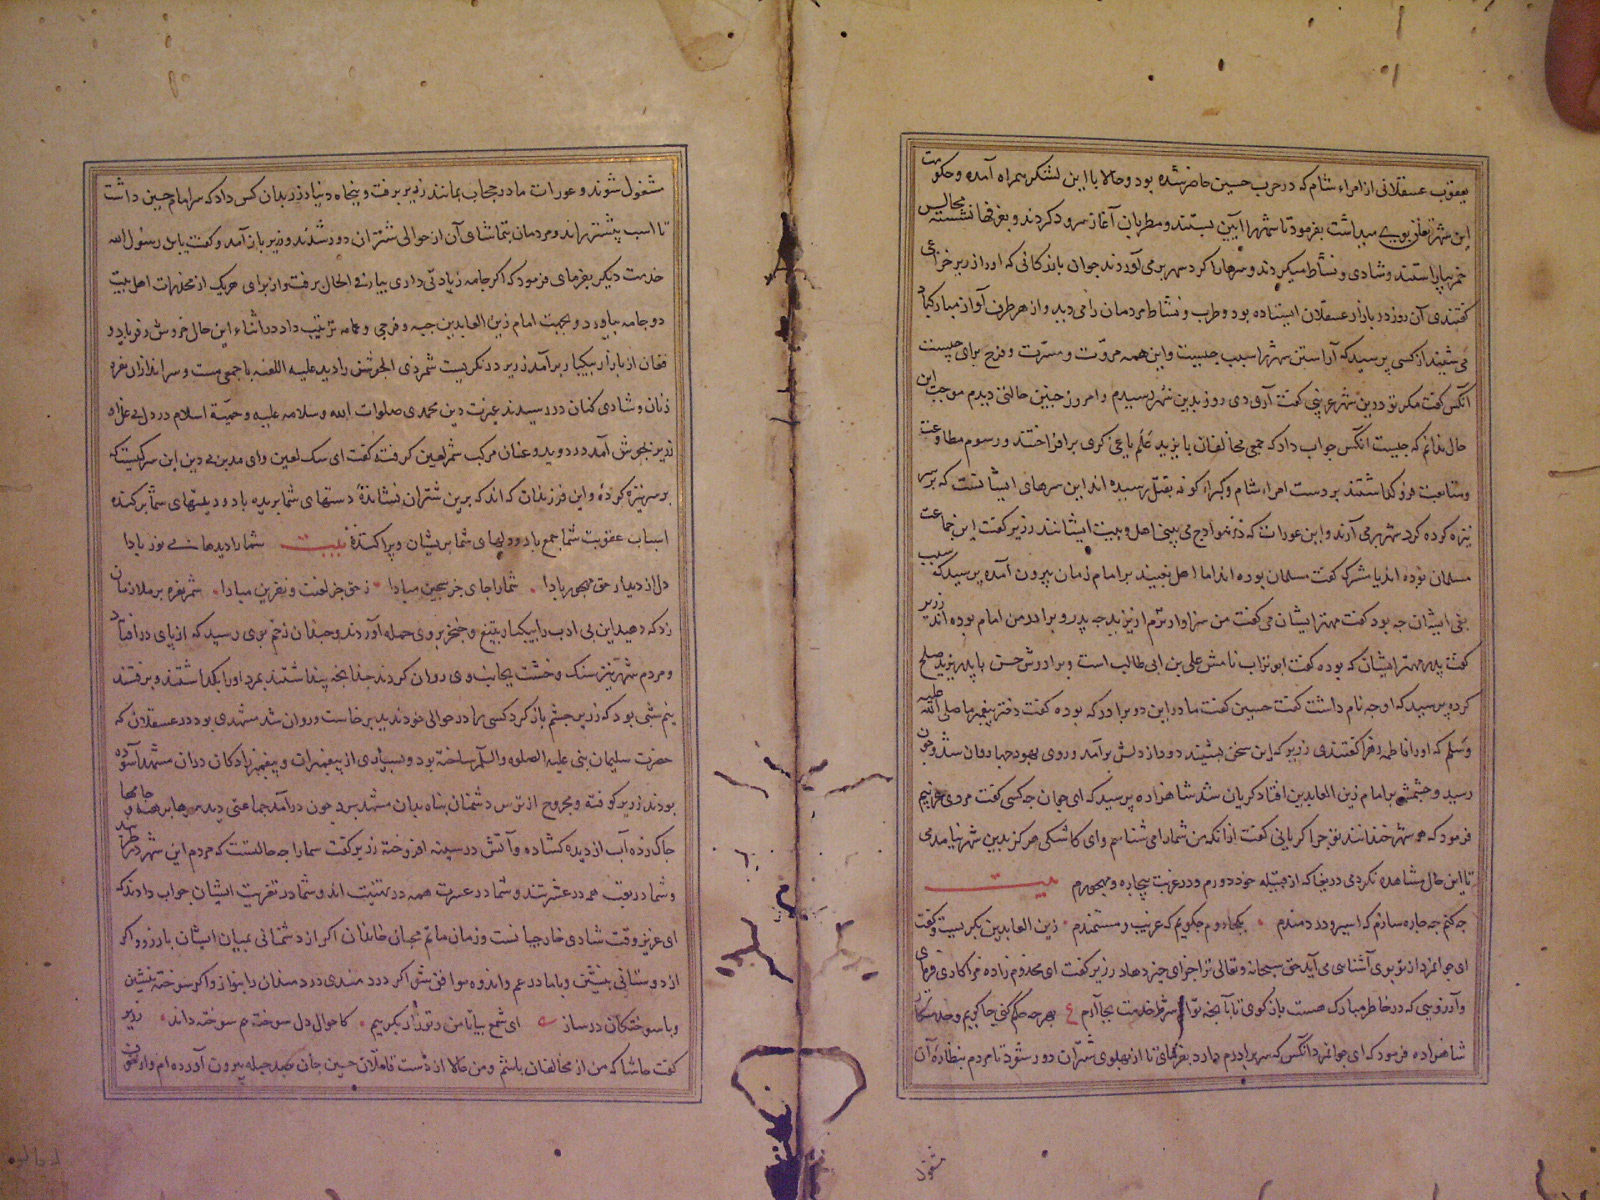 یعقوب عسقلانی از امراء شام که در حرب حسین حاضر شده بود و حالا با این لشکر همراه آمده و حکومت
این شهر تعلق بوی میداشت بفرمود تا شهر را آیین بستند و مطربان آغاز سرود کردند و بغرفها نشسته مجالس
خمر بیاراستند و شادی و نشاط میکردند و سرها را کرد شهر بر می آوردند جوان بازرکانی که او را زریر خزاعی
کفتندی آن روز در بازار عسقلان ایستاده بود و طرب و نشاط مردمان را می دید و از هر طرف آواز مبارکباد
می شنید از کسی پرسید که آراستن شهر را سبب چیست و این همه مروت و مسرت و فرح برای چیست
آنکس کفت مکر تو درین شهر غریبی کفت آری دی روز بدین شهر رسیدم و امروز چنین حالتی دیدم موجب این
حال ندانم که چیست آنکس جواب داد که جمعی مخالفان با یزید علم یاغی کری برافراختند و رسوم مطاوعت
و متابعت فرو کذاشتند بر دست امراء شام و کبراء کوفه بقتل رسیده اند این سرهای ایشانست که بر سر
نیزه کرده کرد شهر می آرند و این عورات که در هوادج می بینی اهل و بیت ایشانند زریر کفت این جماعت
مسلمان بوده اند یا مشرک کفت مسلمان بوده اند اما اهل بغیند بر امام زمان بیرون آمده پرسید که سبب
بغی ایشان چه بود کفت مهتر ایشان می کفت من سزاوارترم از یزید چه پدر و برادر من امام بوده اند زریر
کفت پدر مهتر ایشان که بوده کفت ابو تراب نامش علی بن ابی طالب است و برادرش حسن با پدر یزید صلح
کرده پرسید که او چه نام داشت کفت حسین کفت مادر این دو برادر که بوده کفت دختر پیغمبر ما صلی الله علیه
و سلم که او را فاطمه زهرا کفتندی زریر که این سخن بشنید دود از دلش برآمد و روی بهودجها روان شد و چون
رسید و چشمش بر امام زین العابدین افتاد کریان شد شاهزاده پرسید که ای جوان چه کسی کفت مردی غریبم
فرمود که همه شهر خندانند تو چرا کریانی کفت از آنکه من شما را می شناسم و ای کاشکی هرکز بدین شهر نیامدمی
تا این حال مشاهده نکردمی دریغا که از قبیله خود دورم و در غربت بیچاره و مهجورم بیت
چه کنم چه چاره سازم که اسیر و دردمندم بکجا روم چکویم که غریب و مستمندم زین العابدین بکریست و کفت
ای جوانمرد از تو بوی آشنایی می آید حق سبحانه و تعالی ترا جزای خیر دهاد زریر کفت ای مخدوم زاده مرا کاری فرمای
و آرزویی که در خاطر مبارک هست بازکوی تا بآنچه توانم شرط خدمت بجا آرم ع بهر چه حکم کنی چاکریم و خدمتکار
شاهزاده فرمود که ای جوانمرد آنکس که سر پدرم دارد بفرمای تا از پهلوی شتران دور شود تا مردم بنظاره آن
مشغول
مشغول شوند و عورات ما در حجاب بمانند زریر برفت و پنجاه دینار زر بدان کس داد که سر امام حسین داشت
تا اسب پیشتر راند و مردمان بتماشای آن از حوالی شتران دور شدند و زریر باز آمد و کفت یا ابن رسول الله
خدمت دیکر بفرمای فرمود که اکر جامه زیادتی داری بیار فی الحال برفت و از برای هریک از مخدرات اهل بیت
دو جامه بیاورد و بجهت امام زین العابدین جبه و فرجی و عمامه ترتیب داد در اثناء این حال خروش و فریاد و
فغان از بازار بیکبار برآمد زریر در نکریست شمر ذی الجوشن را دید علیه اللعنه با جمعی مست و سرانداز ان نعره
زنان و شادی کنان در رسیدند غیرت دین محمدی صلوات الله و سلامه علیه و حمیة اسلام در دل بی غل
زریر بجوش آمد در دوید و عنان مرکب شمر لعین کرفت و کفت ای سک لعین و ای مدبر بی دین این سر کیست که
بر سر نیزه کرده و این فرزندان که اند که برین شتران نشانده دستهای شما بریده باد و دیدهای شما برکنده
اسباب عقوبت شما جمع باد و دلهای شما پریشان و پراکنده بیت شما را دیدها بی نور بادا
دل از دیدار حق مهجور بادا شما را جای جز سجین مبادا ز حق جز لعنت و نفرین مبادا شمر نعره بر ملازمان
زد که دهید این بی ادب را بیکبار بتیغ و خنجر بروی حمله آوردند و چندان زخم بوی رسید که از پای در افتاد
و مردم شهر نیز سنک و خشت بجانب وی روان کردند چنانچه پنداشتند بمرد او را بکذاشتند و برفتند
نیم شبی بود که زریر چشم باز کرد کسی را در حوالی خود ندید برخاست و روان شد مشهدی بود در عسقلان که
حضرت سلیمان نبی علیه الصلوه والسلم ساخته بود و بسیاری از پیغمبران و پیغمبرزادکان در آن مشهد آسوده
بودند زریر کوفته و مجروح از ترس دشمنان پناه بدان مشهد برد چون درآمد جماعتی دید سرها برهنه و جامها
چاک زده آب از دیده کشاده و آتش در سینه افروخته زریر کفت شما را چه حالست که مردم این شهر در طربند
و شما در تعب همه در عشرتند و شما در عسرت همه در تهنیت اند و شما در تعزیت ایشان جواب دادند که
ای عزیز وقت شادی خارجیانست و زمان ماتم محبان خاندان اکر از دشمنانی بمیان ایشان باز رو و اکر
از دوستانی بنشین و با ما در غم و اندوه موافق شو اکر دردمندی دردمندان را بنواز و اکر سوخته بنشین
و با سوختکان درساز ای شمع بیا تا من و تو زار بکرییم کاحوال دل سوخته هم سوخته داند زریر
کفت حاشا که من از مخالفان باشم و من حالا از دست قاتلان حسین جان بصد حیله بیرون آورده ام